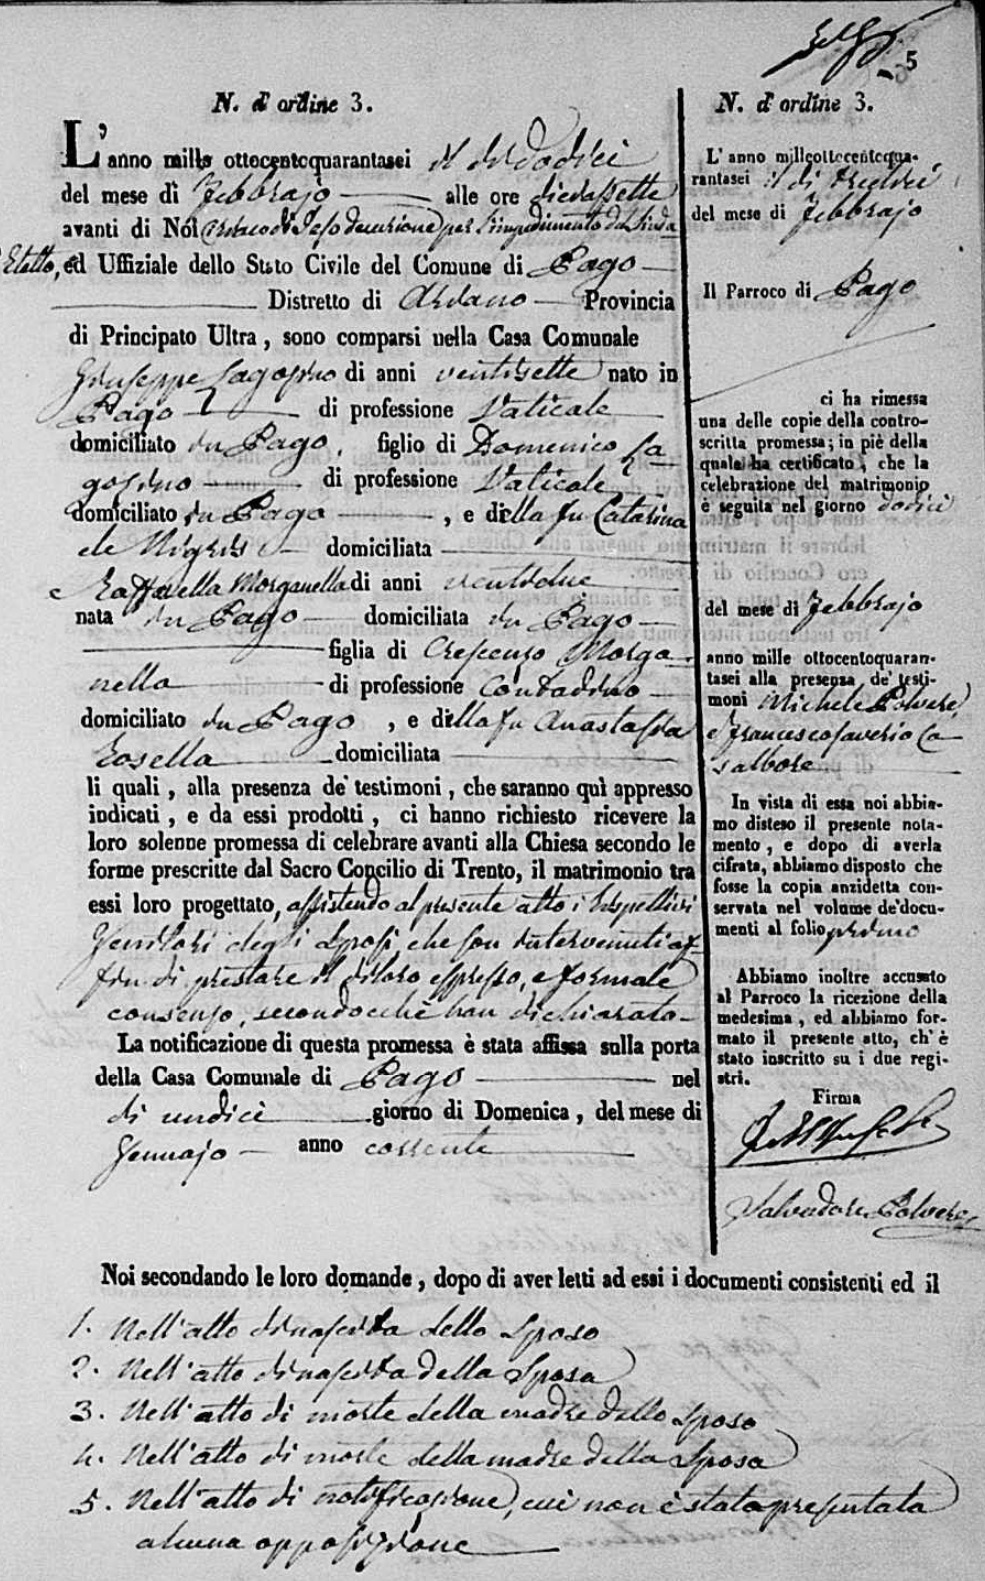 5
N. d'ordine 3.
L'anno mille ottocentoquarantasei il dì dodici
del mese di Febbrajo alle ore diciassette
avanti di Noi per l'impedimento del Sinda
Eletto, ed Uffiziale dello Stato Civile del Comune di Pago
Distretto di Ariano Provincia
di Principato Ultra, sono comparsi nella Casa Comunale
Giuseppe Lagozino di anni ventisette nato in
Pago di professione Vaticale
domiciliato in Pago, figlio di Domenico La
gozino di professione Vaticale
domiciliato in Pago, e della fu Catarina
de Nigris domiciliata
e Raffaella Morganella di anni ventidue
nata in Pago domiciliata in Pago
figlia di Crescenzo Morga
nella di professione Contadino
domiciliato in Pago, e della fu Anastasia
Rosella domiciliata
li quali, alla presenza de' testimoni, che saranno quì appresso
indicati, e da essi prodotti, ci hanno richiesto ricevere la
loro solenne promessa di celebrare avanti alla Chiesa secondo le
forme prescritte dal Sacro Concilio di Trento, il matrimonio tra
essi loro progettato, assistendo al presente atto i rispettivi
Genitori degli Sposi, che son intervenuti af-
fin di prestare il di loro espresso, e formale
consenso, secondocchè han dichiarato
La notificazione di questa promessa è stata affissa sulla porta
della Casa Comunale di Pago nel
dì undici giorno di Domenica, del mese di
Gennajo anno corrente
N. d'ordine 3.
L'anno milleottocentoqua-
rantasei il dì tredici
del mese di Febbrajo
Il Parroco di Pago
ci ha rimessa
una delle copie della contro-
scritta promessa; in piè della
quale ha certificato, che la
celebrazione del matrimonio
è seguita nel giorno dodici
del mese di Febbrajo
anno mille ottocentoquaran-
tasei alla presenza de' testi-
moni Michele Polvere,
e Francesco Saverio Ca
salbore
In vista di essa noi abbia-
mo disteso il presente nota-
mento, e dopo di averla
cifrata, abbiamo disposto che
fosse la copia anzidetta con-
servata nel volume de' docu-
menti al folio primo
Abbiamo inoltre accusato
al Parroco la ricezione della
medesima, ed abbiamo for-
mato il presente atto, ch'è
stato inscritto su i due regi-
stri.
Firma
Salvadore Polvere
Noi secondando le loro domande, dopo di aver letti ad essi i documenti consistenti ed il
1. Nell'atto di nascita dello Sposo
2. Nell'atto di nascita della Sposa
3. Nell'atto di morte della madre dello Sposo
4. Nell'atto di morte della madre della Sposa
5. Nell'atto di notificazione, cui non è stata presentata
alcuna opposizione